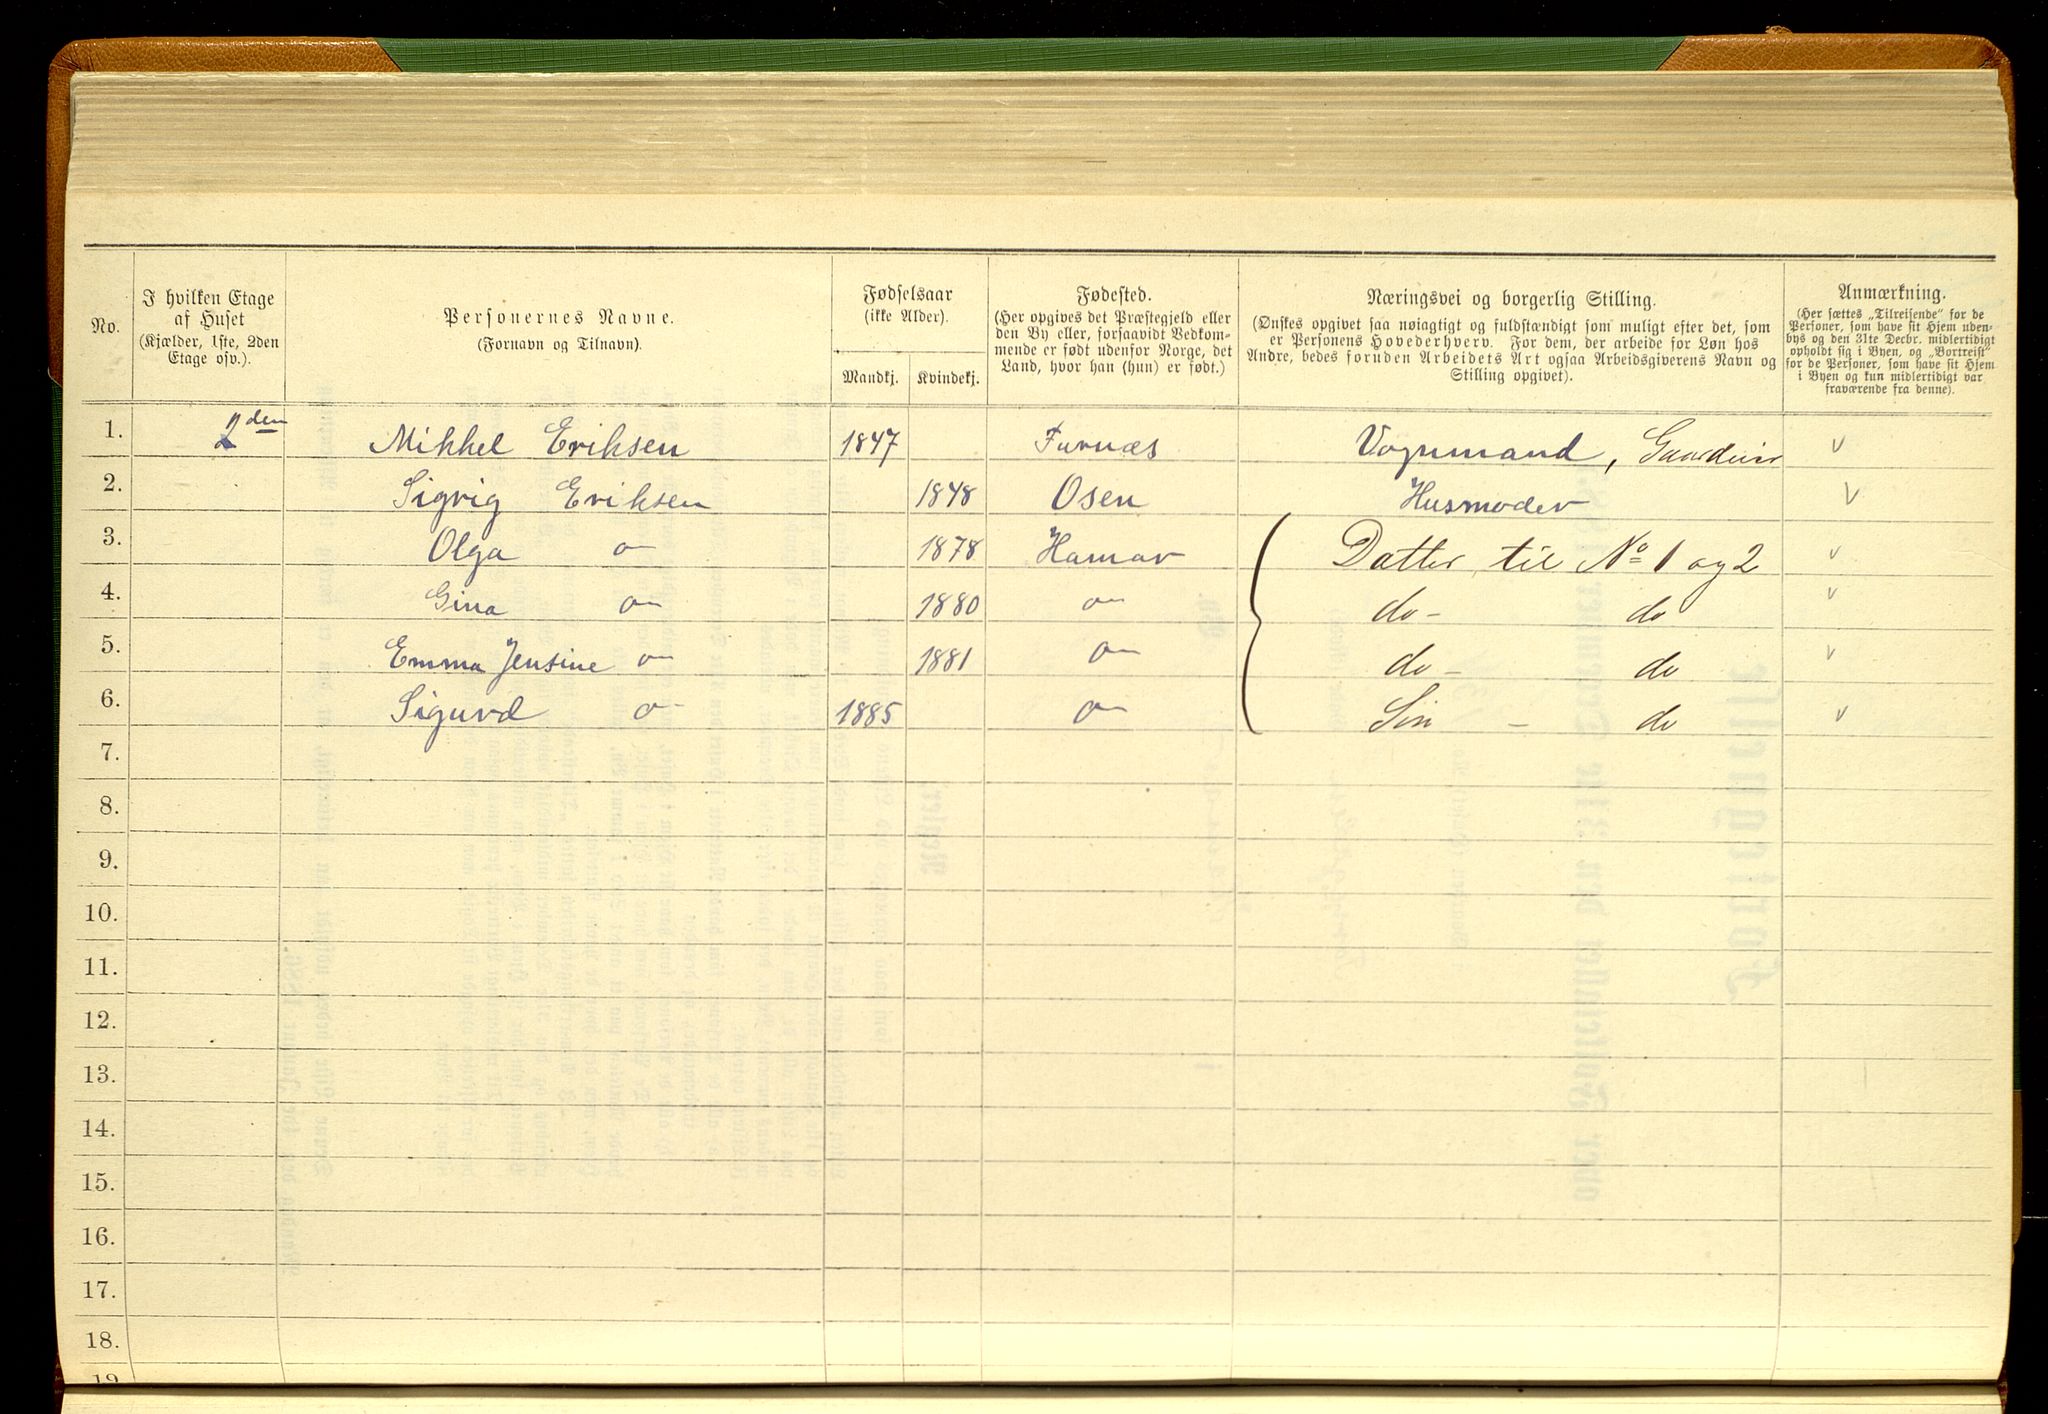 No.
I hvilken Etage af Huset
(Kjælder, 1ste, 2den Etage osv.).
Personernes Navne.
(Fornavn og Tilnavn).
Fødselsaar
(ikke Alder).
Mandkj. Kvindekj.
Fødested.
(Her opgives det Præstegjeld eller
den By eller, forsaavidt Vedkom-
mende er født udenfor Norge, det
Land, hvor han (hun) er født.)
Næringsvei og borgerlig Stilling.
(Ønskes opgivet saa nøiagtigt og fuldstændigt som muligt efter det, som
er Personens Hovederhverv. For dem, der arbeide for Løn hos
Andre, bedes foruden Arbeidets Art ogsaa Arbeidsgiverens Navn og
Stilling opgivet).
Anmærkning.
(Her sættes „Tilreisende" for de
Personer, som have sit Hjem uden-
bys og den 31te Decbr. midlertidigt
opholdt sig i Byen, og „Bortreist"
for de Personer, som have sit Hjem
i Byen og kun midlertidigt var
fraværende fra denne).
1. 2den Mikkel Eriksen 1847 Furnæs Vognmand, Gaardeier v
2. Sigrig Eriksen 1848 Osen Husmoder v
3. Olga 〃 1878 Hamar Datter til No 1 og 2 v
4. Gina 〃 1880 〃 do - do v
5. Emma Jensine 〃 1881 〃 do - do v
6. Sigurd 〃 1885 〃 Søn - do v
7.
8.
9.
10.
11.
12.
13.
14.
15.
16.
17.
18.
19